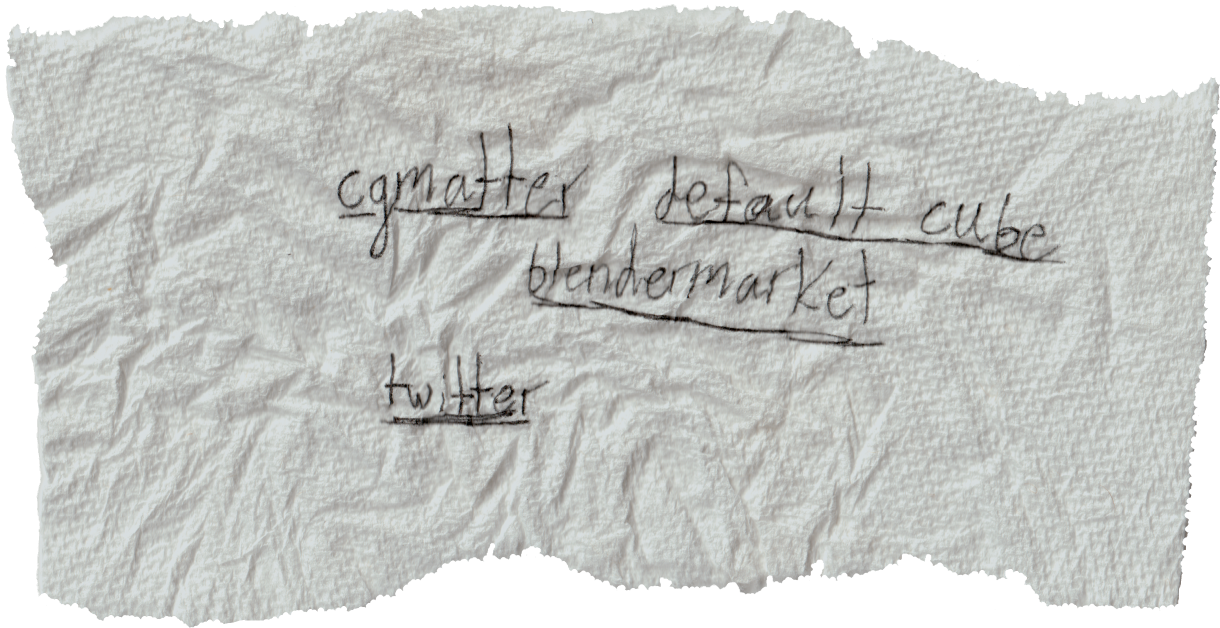 cgmatter default cube
blendermarket
twitter